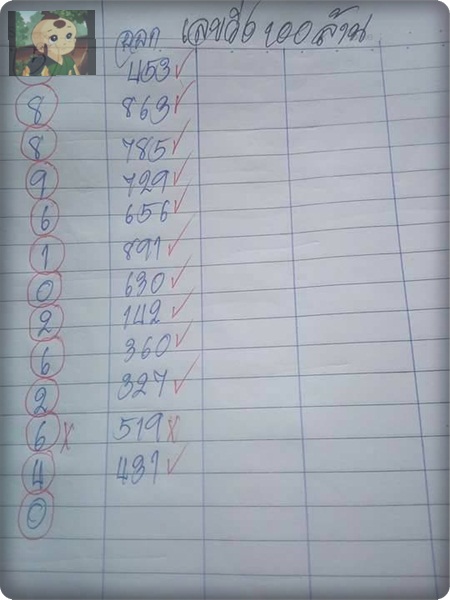 ออก เลขวิ่ง 100 ล้าน
453 ✓
8 863 ✓
8 785 ✓
9 729 ✓
6 656 ✓
1 891 ✓
0 630 ✓
2 142 ✓
6 360 ✓
2 327 ✓
6 x 519 x
4 431 ✓
0